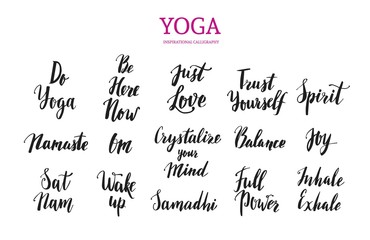 YOGA
INSPIRATIONAL CALLIGRAPHY
Do
Yoga
Be
Here
Now
Just
Love
Trust
Yourself
Spirit
Namaste
Om
Crystalize
your
Mind
Balance
Joy
Sat
Nam
Wake
up
Samadhi
Full
Power
Inhale
Exhale